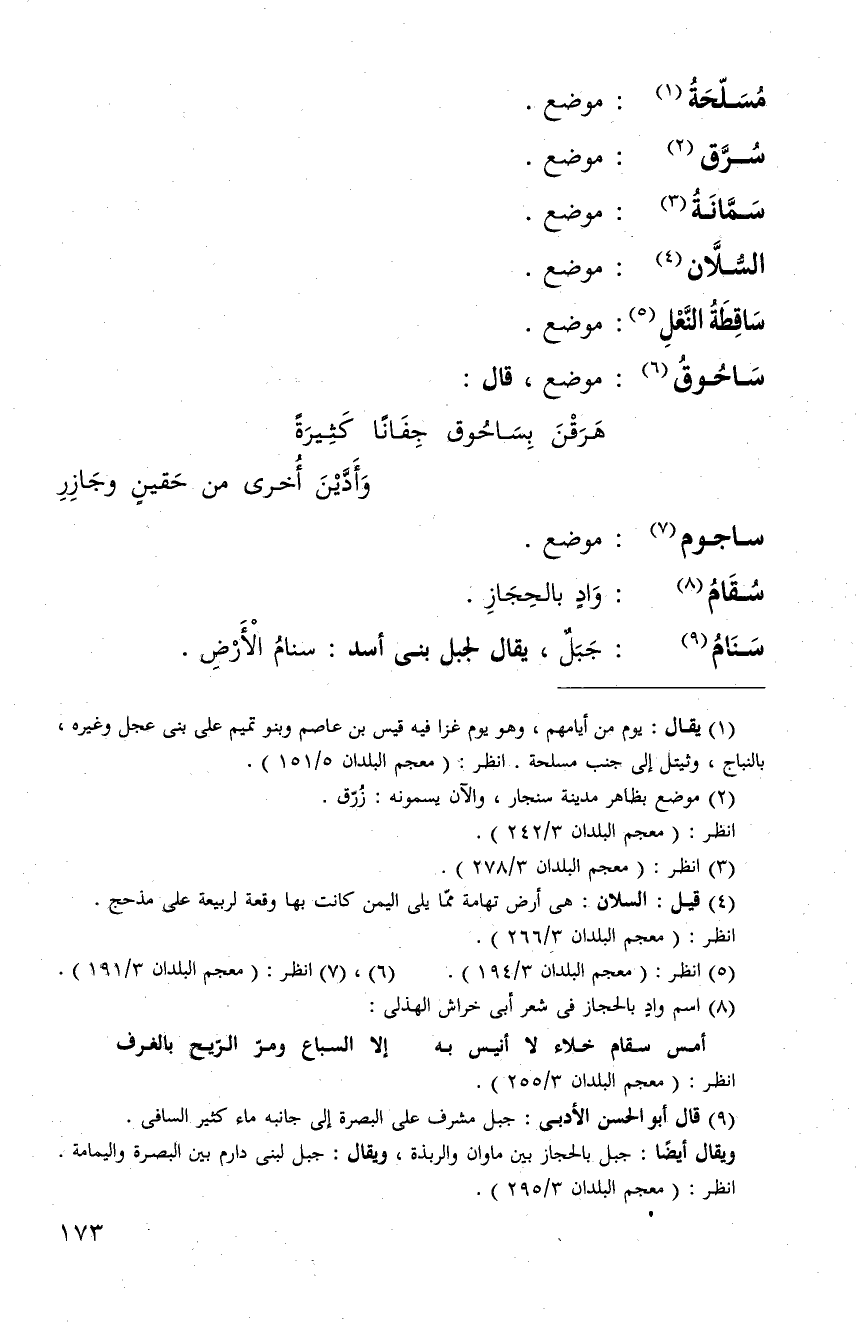 مُسَلَّحَةُ (١) : موضع .
سُرَّق (٢) : موضع .
سَمَّانَةُ (٣) : موضع .
السُّلَّان (٤) : موضع .
سَاقِطَةُ النَّعْلِ (٥) : موضع .
سَاحُوقُ (٦) : موضع ، قال :
هَرَقْنَ بِسَاحُوق جِفَانًا كَثِيرَةً
وَأَدَّيْنَ أُخرى من حَقينٍ وحَازِرِ
ساجوم (٧) : موضع .
سُقَامُ (٨) : وَادٍ بالحِجَازِ .
سَنَامُ (٩) : جَبَلٌ ، يقال لجبل بنى أسد : سنامُ الْأَرْضِ .
(١) يقال : يوم من أيامهم ، وهو يوم غزا فيه قيس بن عاصم وبنو تميم على بنى عجل وغيره ،
بالنباج ، وثيتل إلى جنب مسلحة . انظر : ( معجم البلدان ١٥١/٥ ) .
(٢) موضع بظاهر مدينة سنجار ، والآن يسمونه : زُرّق .
انظر : ( معجم البلدان ٢٤٢/٣ ) .
(٣) انظر : ( معجم البلدان ٢٧٨/٣ ) .
(٤) قيل : السلان : هى أرض تهامة ممّا يلى اليمن كانت بها وقعة لربيعة على مذحج .
انظر : ( معجم البلدان ٢٦٦/٣ ) .
(٥) انظر : ( معجم البلدان ١٩٤/٣ ) . (٦) ، (٧) انظر : ( معجم البلدان ١٩١/٣ ) .
(٨) اسم وادٍ بالحجاز فى شعر أبى خراش الهذلى :
أمس سقام خلاء لا أنيس به إلا السباع ومرّ الرّيح بالغرف
انظر : ( معجم البلدان ٢٥٥/٣ ) .
(٩) قال أبو الحسن الأدبى : جبل مشرف على البصرة إلى جانبه ماء كثير السافى .
ويقال أيضًا : جبل بالحجاز بين ماوان والربذة ، ويقال : جبل لبنى دارم بين البصرة واليمامة .
انظر : ( معجم البلدان ٢٩٥/٣ ) .
١٧٣